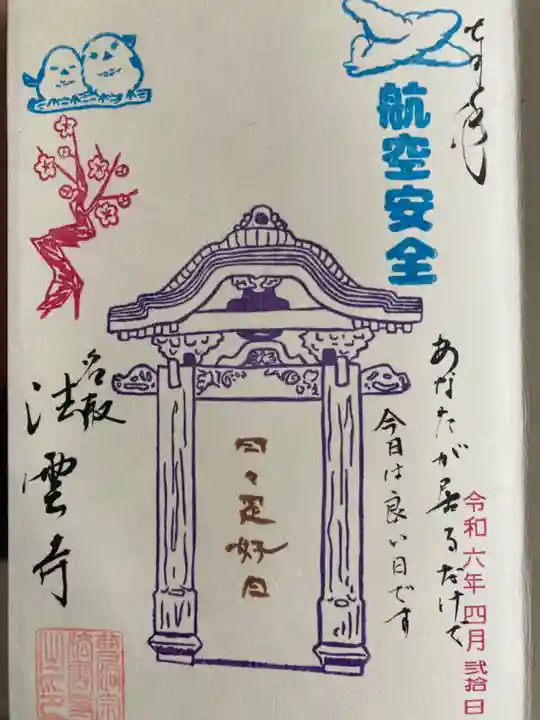 奉拝
航空安全
あなたが居るだけで
今日は良い日です
令和六年四月弐拾日
日々是好日
名取
法雲寺